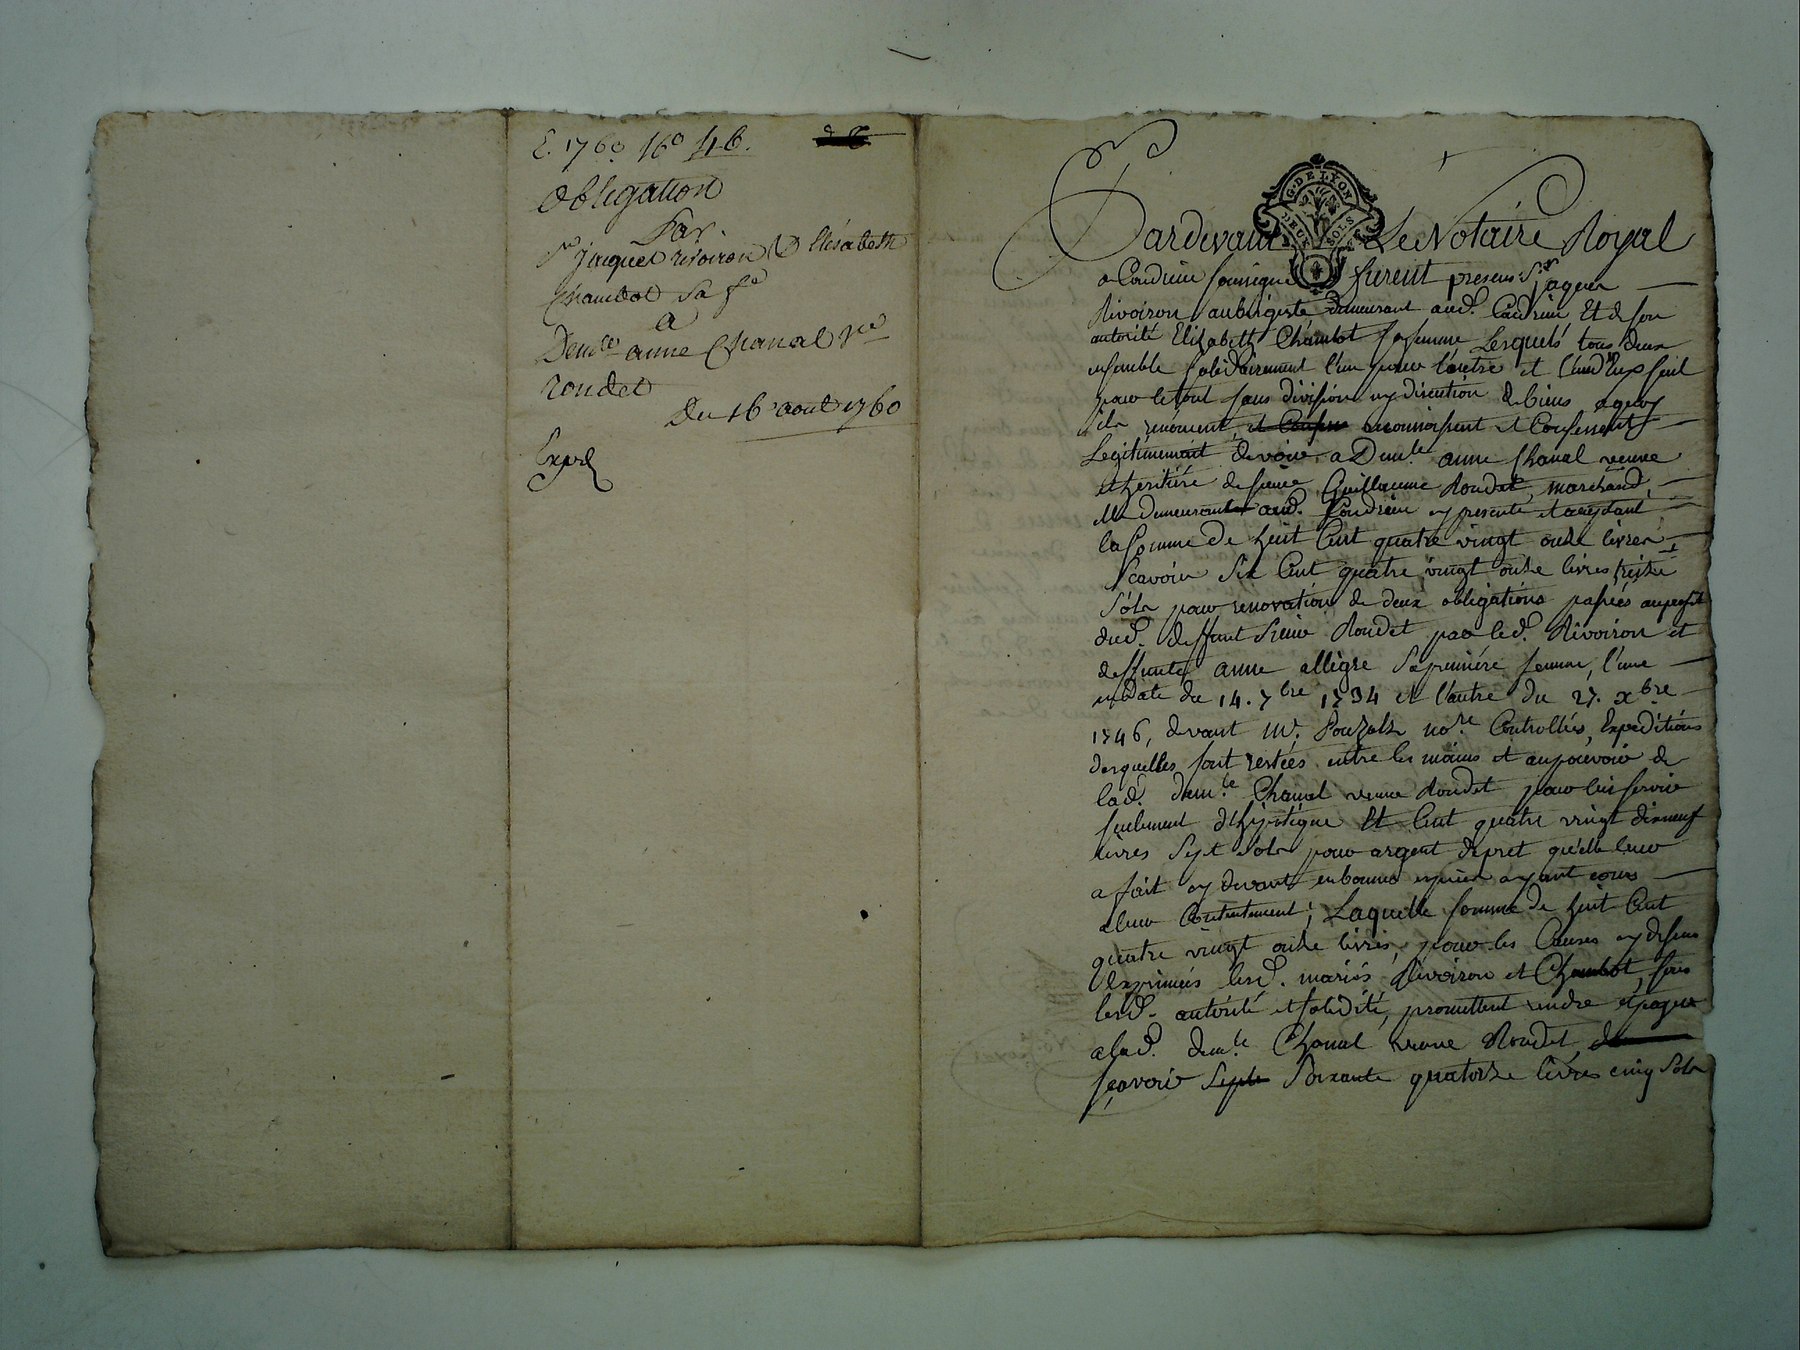 E. 1760 16o 46.
Obligation
Par
Sr Jacques rivoiron & Elisabeth
Chambot Sa fe
a
Demlle anne Chanal Vve
rondet
Du 16 aout 1760
Expd
G. DE LYON
DEUX SOLS
Pardevant Le Notaire Royal
a Condrieu soussigné furent presens Sr. jaques
Rivoiron aubergiste demeurant aud. Condrieu Et de son
autorité Elizabeth Chambot sa femme Lesquels tous deux
ensemble solidairement l'un pour l'autre et l'un d'eux seul
pour le tout sans division ny discution de biens a quoy
ils renoncent, et Confess reconnoissent et Confessent
Legitimement devoir a Demlle anne Chanal veuve
et heritiére de sieur Guillaume Rondet, marchand,
elle demeurante aud. Condrieu cy presente et acceptant
la somme de huit Cent quatre vingt onze livres
Scavoir Six Cent quatre vingt onze livres treize
Sols pour renovation de deux obligations passées au profit
dud. deffunt Sieur Rondet par led. Rivoiron et
deffunte anne allegre Sa premiére femme, l'une
en date du 14. 7bre 1734 et l'autre du 27. xbre
1746, devant Me. Pouzols nore. Controllées, Expeditions
desquelles sont restées entre les mains et au pouvoir de
lad. demlle Chanal veuve Rondet pour lui servir
seulement d'hypoteque Et Cent quatre vingt dixneuf
livres Sept Sols pour argent de pret qu'elle leur
a fait cy devant en bonnes especes ayant cours
a leur Contentement; Laquelle somme de huit Cent
quatre vingt onze livres, pour les Causes cy dessus
Exprimées lesd. mariés Rivoiron et Chambot, sous
lesd. autorité et solidité, promettent rendre et payer
a lad. demlle Chanal veuve Rondet,
sçavoir Septe Soixante quatorze livres cinq Sols